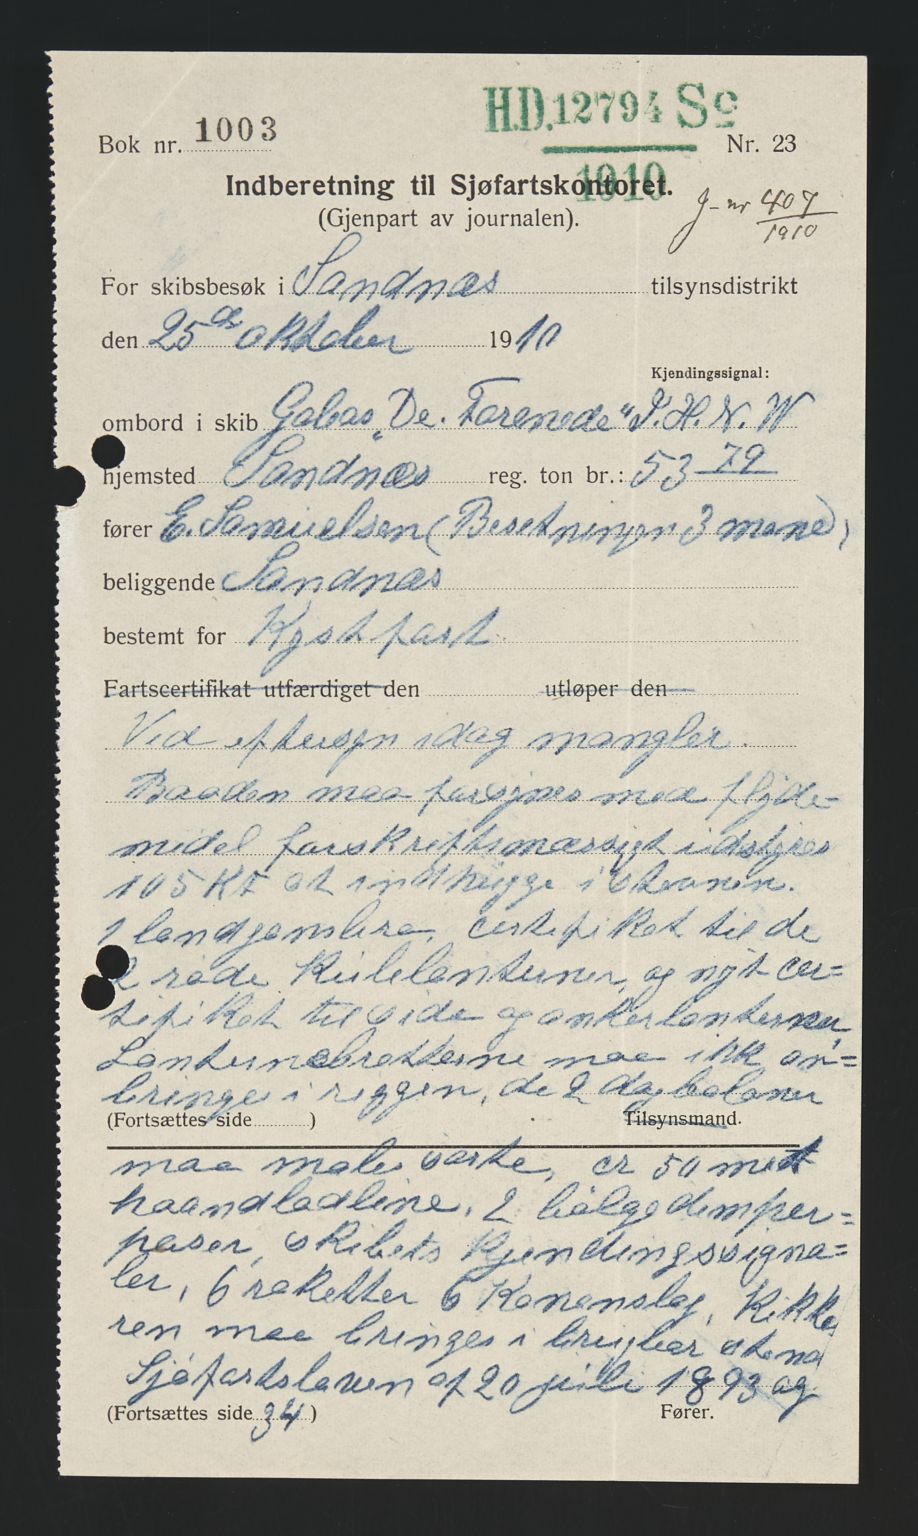 H.D. 12794 Sc
1910
Bok nr. 1003
Nr. 23
Indberetning til Sjøfartskontoret.
(Gjenpart av journalen).
J-nr 407
1910
For skibsbesøk i Sandnæs tilsynsdistrikt
den 25de oktober 1910
Kjendingssignal:
ombord i skib Galeas „De. Forenede“ J.H.N.W
hjemsted Sandnæs reg. ton br.: 53 79
fører E. Samuelsen (Besetningen 3 mand)
beliggende Sandnæs
bestemt for Kystfart
Fartscertifikat utfærdiget den utløper den
Ved eftersyn idag mangler.
Baaden maa forsynes med flyde-
midel forskriftsmæssigt utstyres
105 Kf at indhugge i stevnen.
1 landgandlern, certifikat til de
2 røde Kulelanterner, og nyt cer=
tifikat til side og ankerlanterner
Lanternebretterne maa ikk an=
bringes i riggen, de 2 dagbaloner
(Fortsættes side ) Tilsynsmand.
maa males sorte, cr 50 met
haandlodline, 2 bølgedemper=
poser, skibets Kjendingssigna=
ler, 6 raketter 6 Kanonslag, Kikke
ren maa bringes i brugbar stand
Sjøfartsloven af 20 juli 1893 og
(Fortsættes side 34 ) Fører.